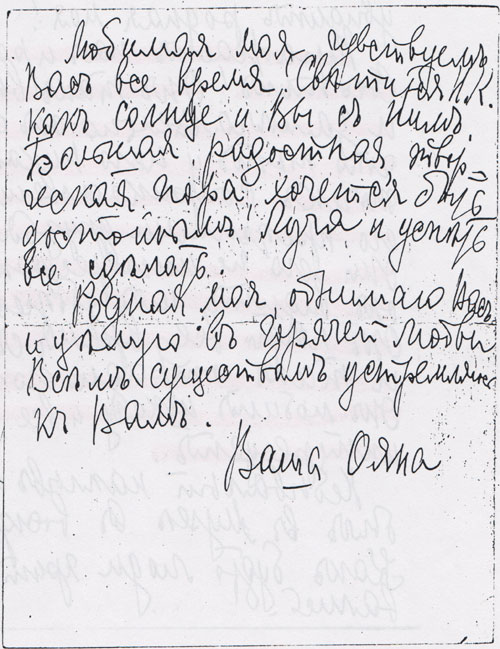 Любимая моя, чувствуемъ
Васъ все время. Святится Н.К.
какъ солнце и Вы съ нимъ.
Большая, радостная, твор-
ческая пора, хочется быть
достойнымъ Луча и успѣть
все сдѣлать.
Родная моя, обнимаю Васъ
и цѣлую въ горячей любви
Всѣмъ существомъ устремляюсь
къ Вамъ.
Ваша Ояна